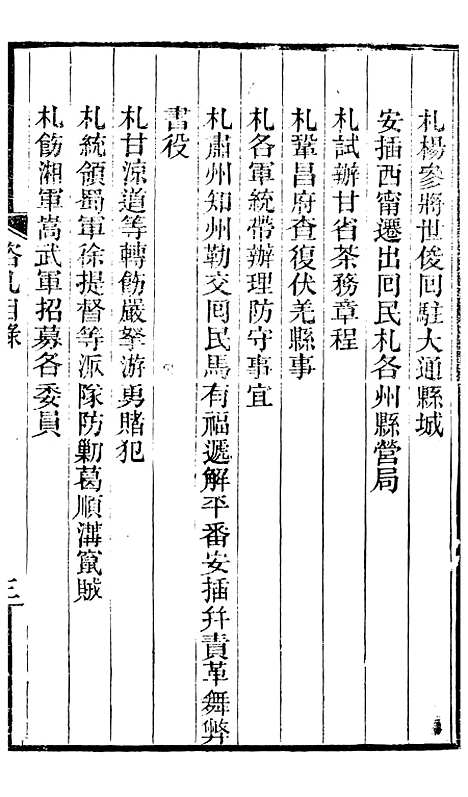 札楊參將世俊回駐大通縣城
安插西甯遷出回民札各州縣營局
札試辦甘省茶務章程
札鞏昌府查復伏羌縣事
札各軍統帶辦理防守事宜
札肅州知州勒交囘民馬有福遞解平番安插并責革舞弊
書役
札甘涼道等轉飭嚴拏游勇賭犯
札統領蜀軍徐提督等派隊防勦葛順溝竄賊
札飭湘軍嵩武軍招募各委員
咨札目錄
三